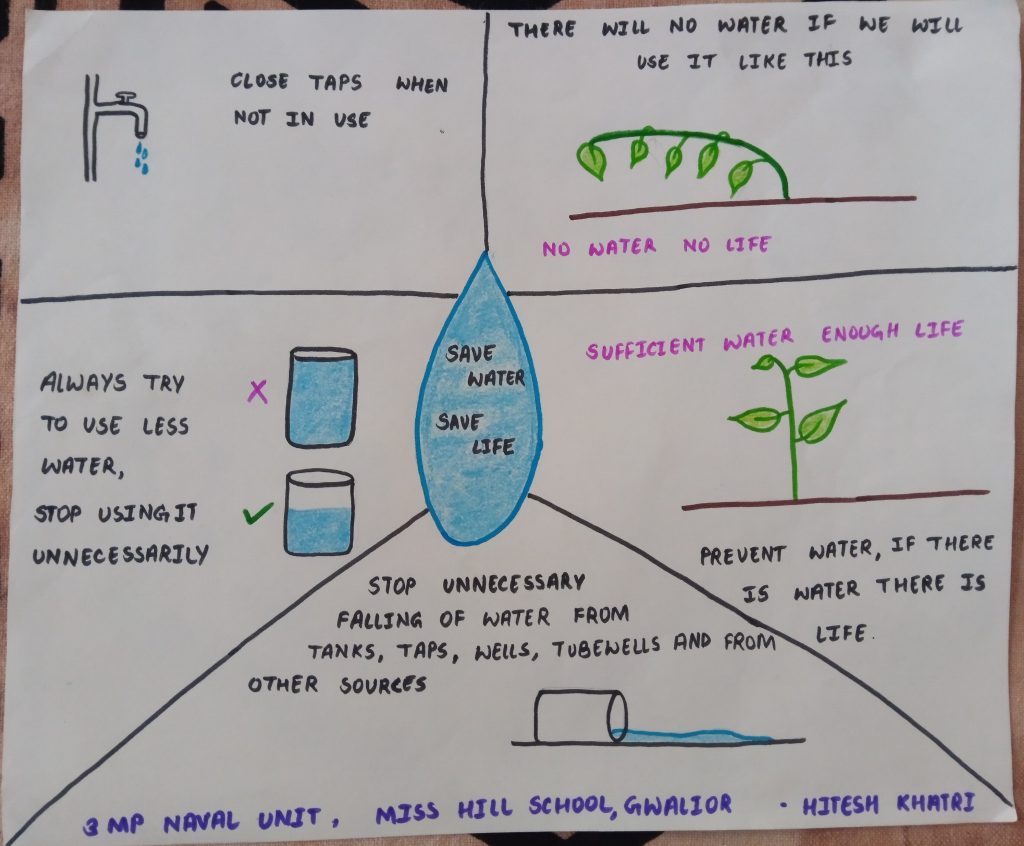 CLOSE TAPS WHEN
NOT IN USE
THERE WILL NO WATER IF WE WILL
USE IT LIKE THIS
NO WATER NO LIFE
ALWAYS TRY
TO USE LESS
WATER,
STOP USING IT
UNNECESSARILY
SAVE
WATER
SAVE
LIFE
SUFFICIENT WATER ENOUGH LIFE
PREVENT WATER, IF THERE
IS WATER THERE IS
LIFE.
STOP UNNECESSARY
FALLING OF WATER FROM
TANKS, TAPS, WELLS, TUBEWELLS AND FROM
OTHER SOURCES
3 MP NAVAL UNIT, MISS HILL SCHOOL, GWALIOR · HITESH KHATRI